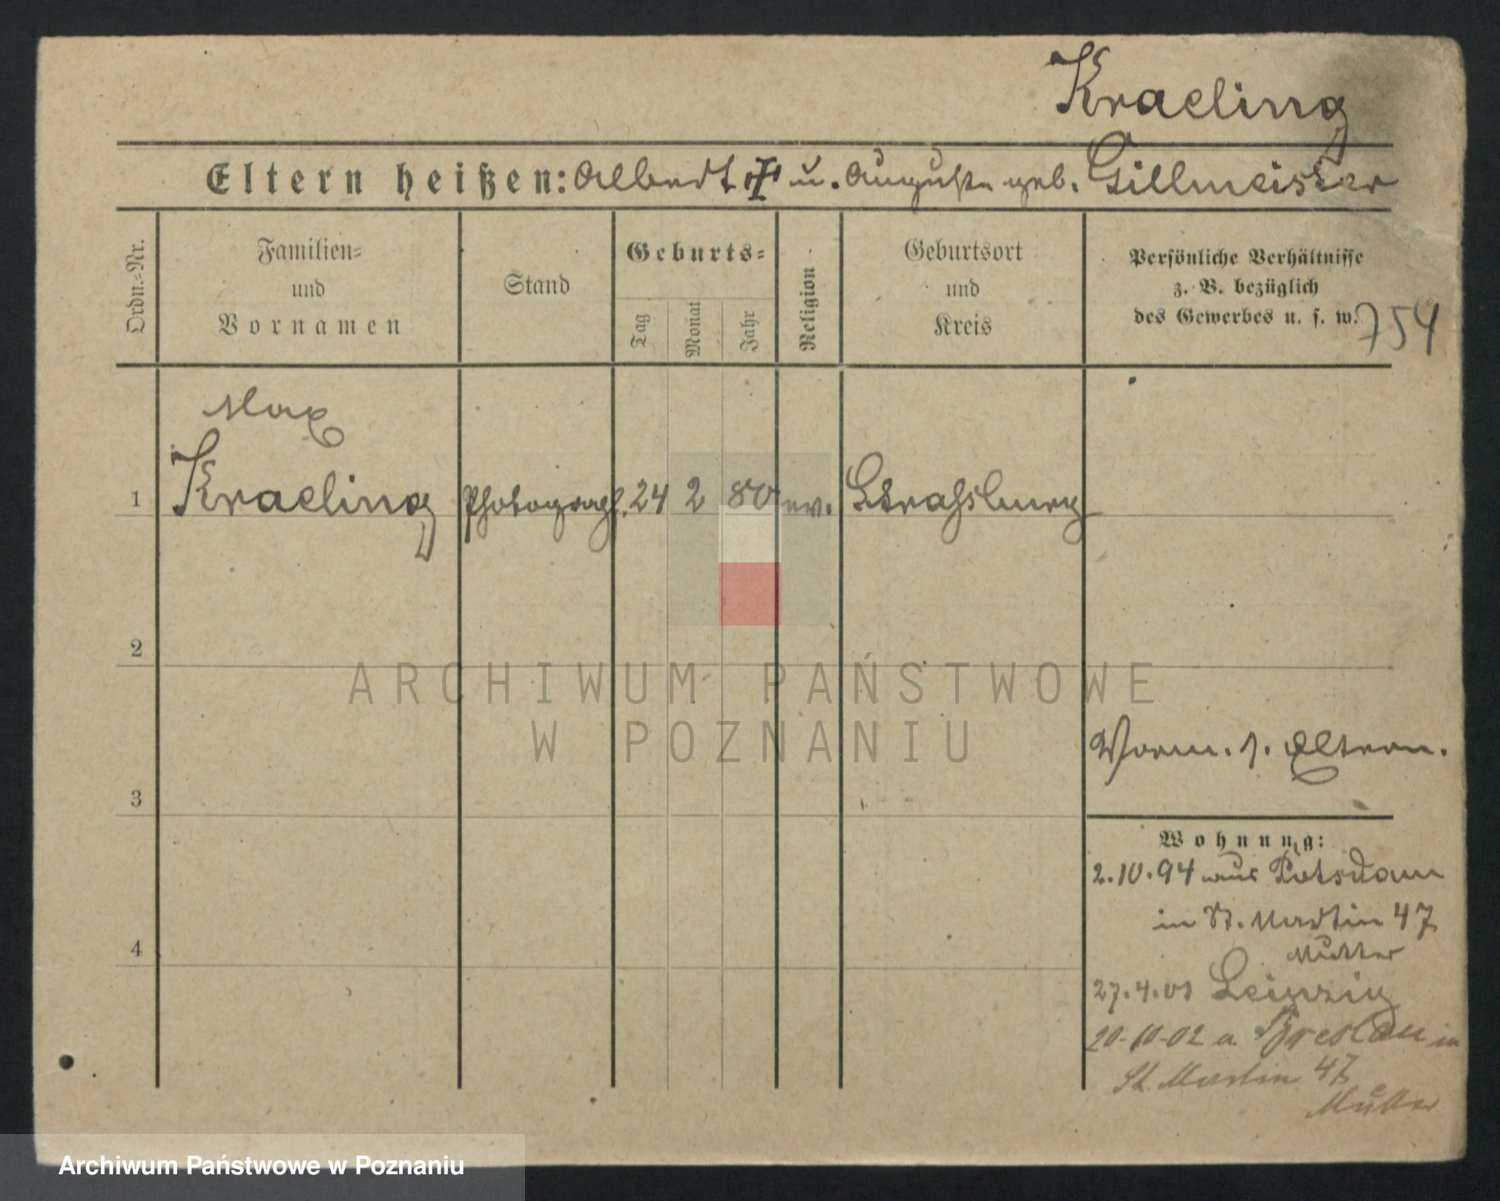 Kraeling
Eltern heißen: Albert † u. Auguste geb. Gillmeister
Ordn.=Nr.
Familien=
und
Vornamen
Stand
Geburts=
Tag
Monat
Jahr
Religion
Geburtsort
und
Kreis
Persönliche Verhältnisse
z. B. bezüglich
des Gewerbes u. s. w.
754
Max
1 Kraeling Photograph. 24 2 80 ev. Straßburg
2
ARCHIWUM PAŃSTWOWE
W POZNANIU
Vorm. s. Eltern.
3
Wohnung:
2.10.94 aus Potsdam
in St. Martin 47
Mutter
4
27.4.01 Leipzig
20.10.02 a Breslau in
St. Martin 47
Mutter
Archiwum Państwowe w Poznaniu